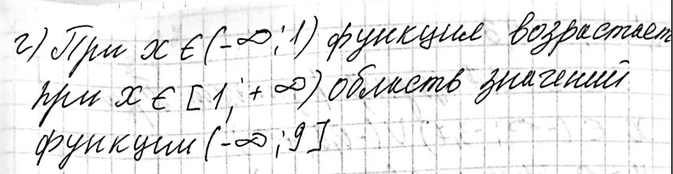 г) При x ∈ (-∞; 1) функция возрастает
при x ∈ [1; +∞) область значений
функции (-∞; 9]